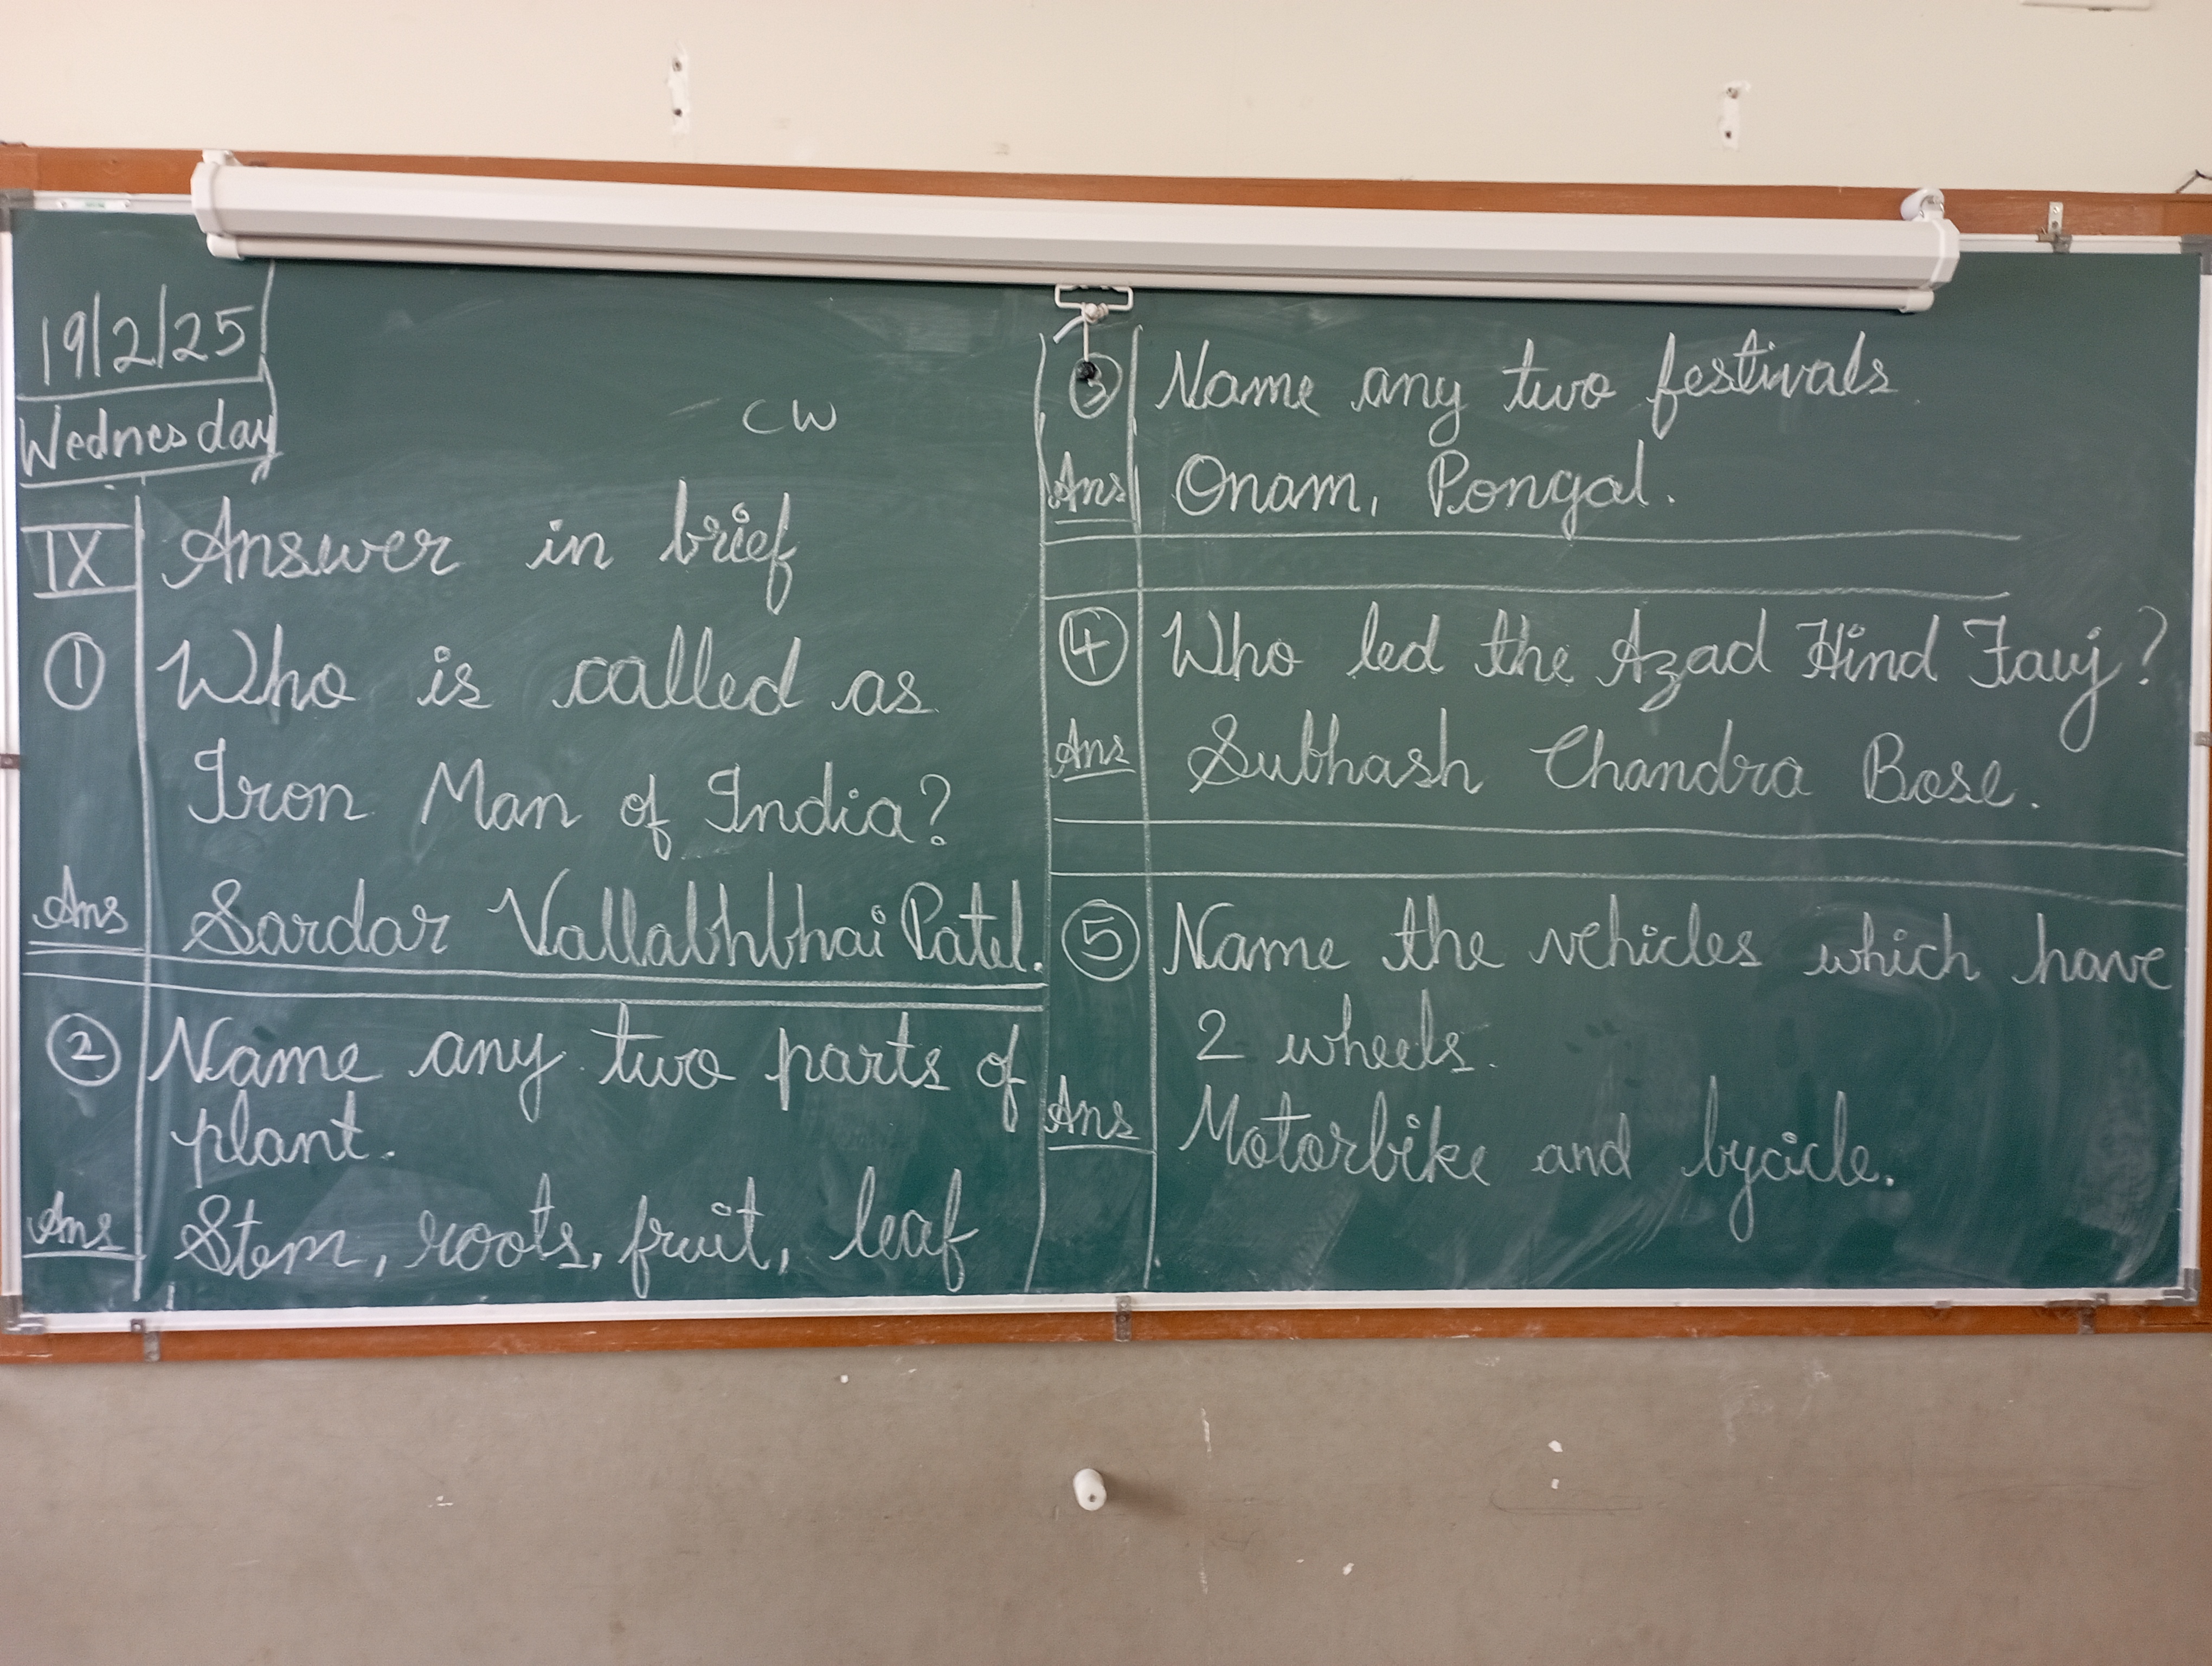 19/2/25
Wednesday
CW
IX Answer in brief
① Who is called as
Iron Man of India?
Ans Sardar Vallabhbhai Patel.
② Name any two parts of
plant.
Ans Stem, roots, fruit, leaf
③ Name any two festivals
Ans Onam, Pongal.
④ Who led the Azad Hind Fauj?
Ans Subhash Chandra Bose.
⑤ Name the vehicles which have
2 wheels.
Ans Motorbike and bycicle.